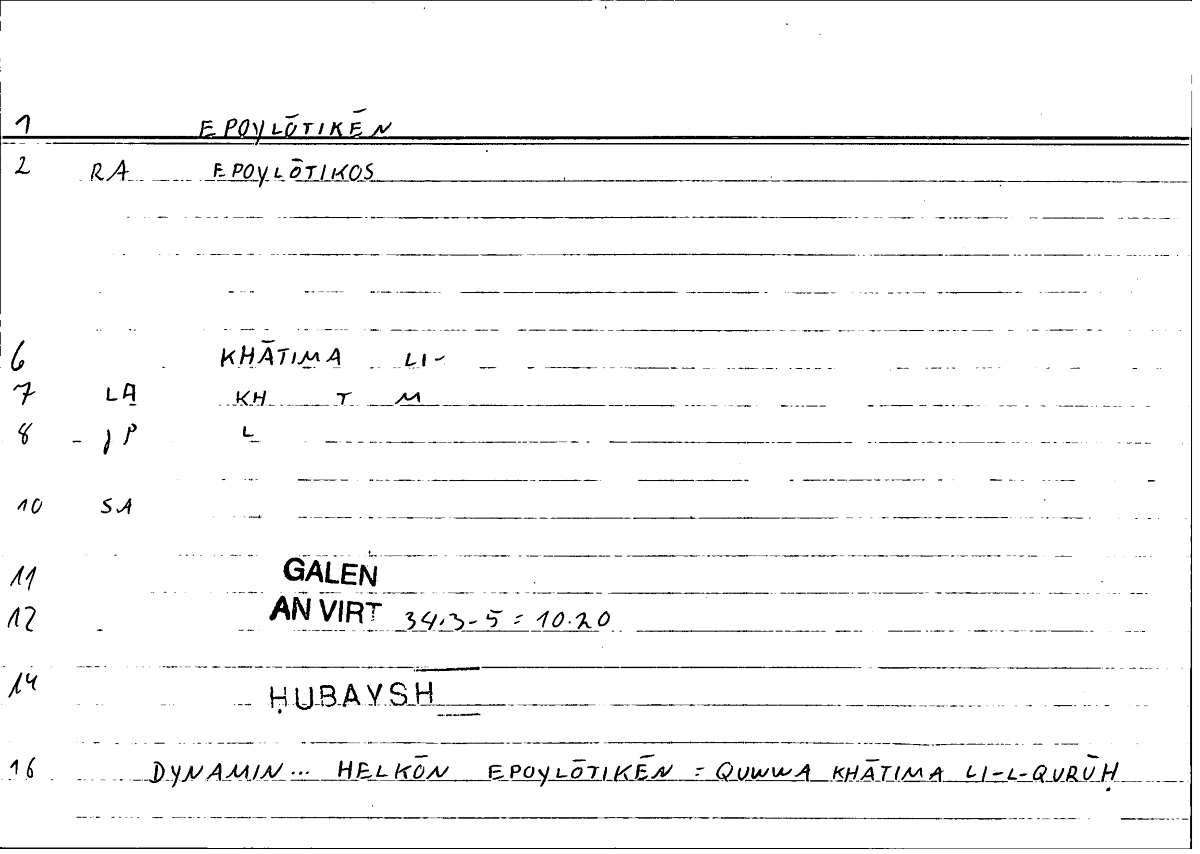 1 EPOYLŌTIKĒN
2 RA EPOYLŌTIKOS
6 KHĀTIMA LI-
7 LA KH T M
8 L
10 SA
11 GALEN
12 AN VIRT 34.3-5 = 10.20
14 ḤUBAYSH
16 DYNAMIN... HELKŌN EPOYLŌTIKĒN = QUWWA KHĀTIMA LI-L-QURŪḤ